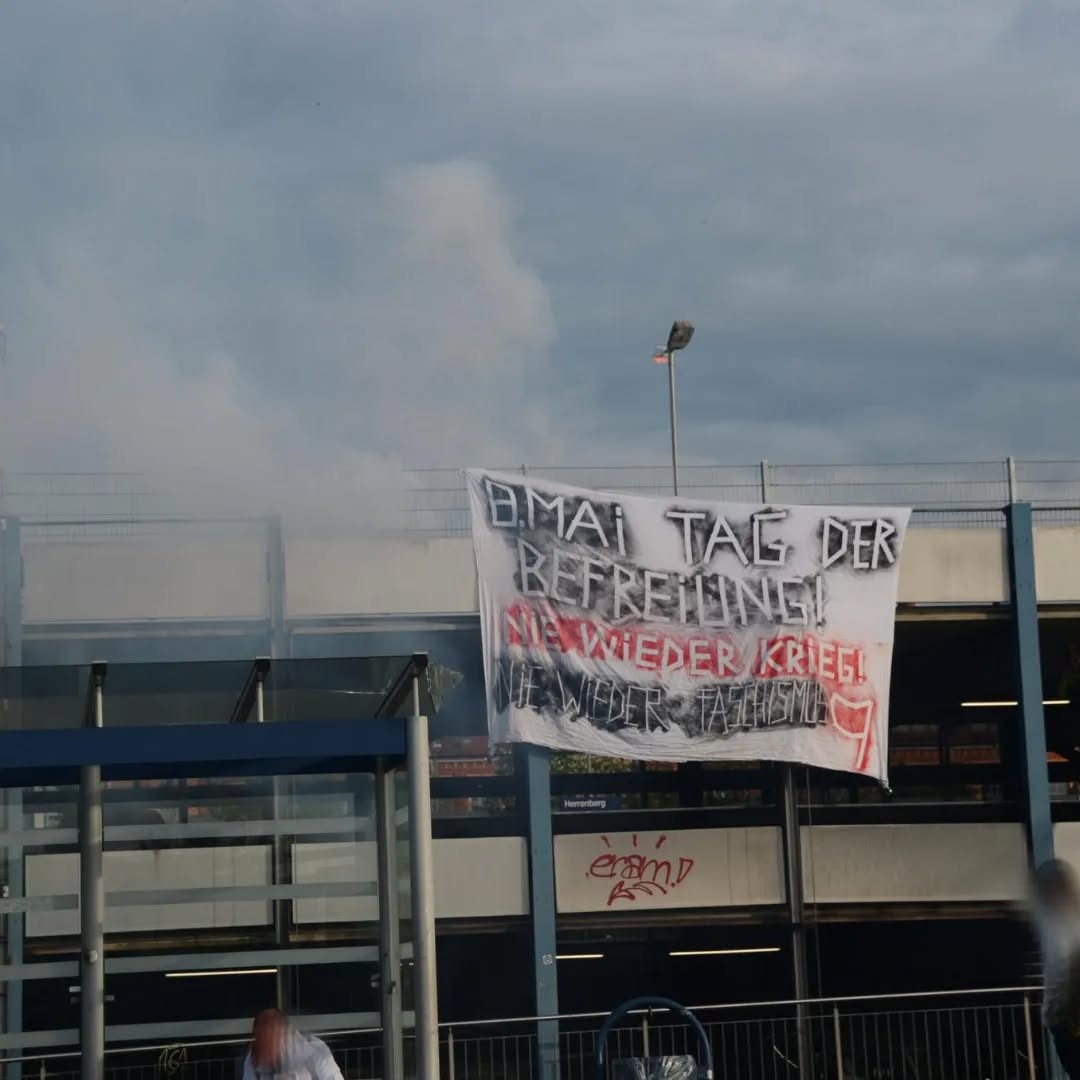 8.MAi TAG DER
BEFREiUNG!
NIE WiEDER KRIEG!
NIE WIEDER FASCHISMUS
Herrenberg
eram.D
161